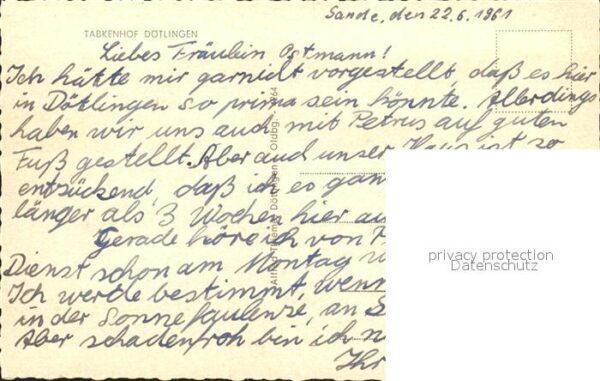 Sande, den 22.6.1961
TABKENHOF DÖTLINGEN
Liebes Fräulein Ostmann!
Ich hätte mir garnicht vorgestellt, daß es hier
in Dötlingen so prima sein könnte. Allerdings
haben wir uns auch mit Petrus auf guten
Fuß gestellt. Aber auch unser Haus ist so
entzückend, daß ich es gan
länger als 3 Wochen hier au
Gerade höre ich von
Dienst schon am Montag
Ich werde bestimmt, wenn
in der Sonne faulenze, an S
Aber schadenfroh bin ich n
Ihr
Dötlingen Oldbg.
privacy protection
Datenschutz